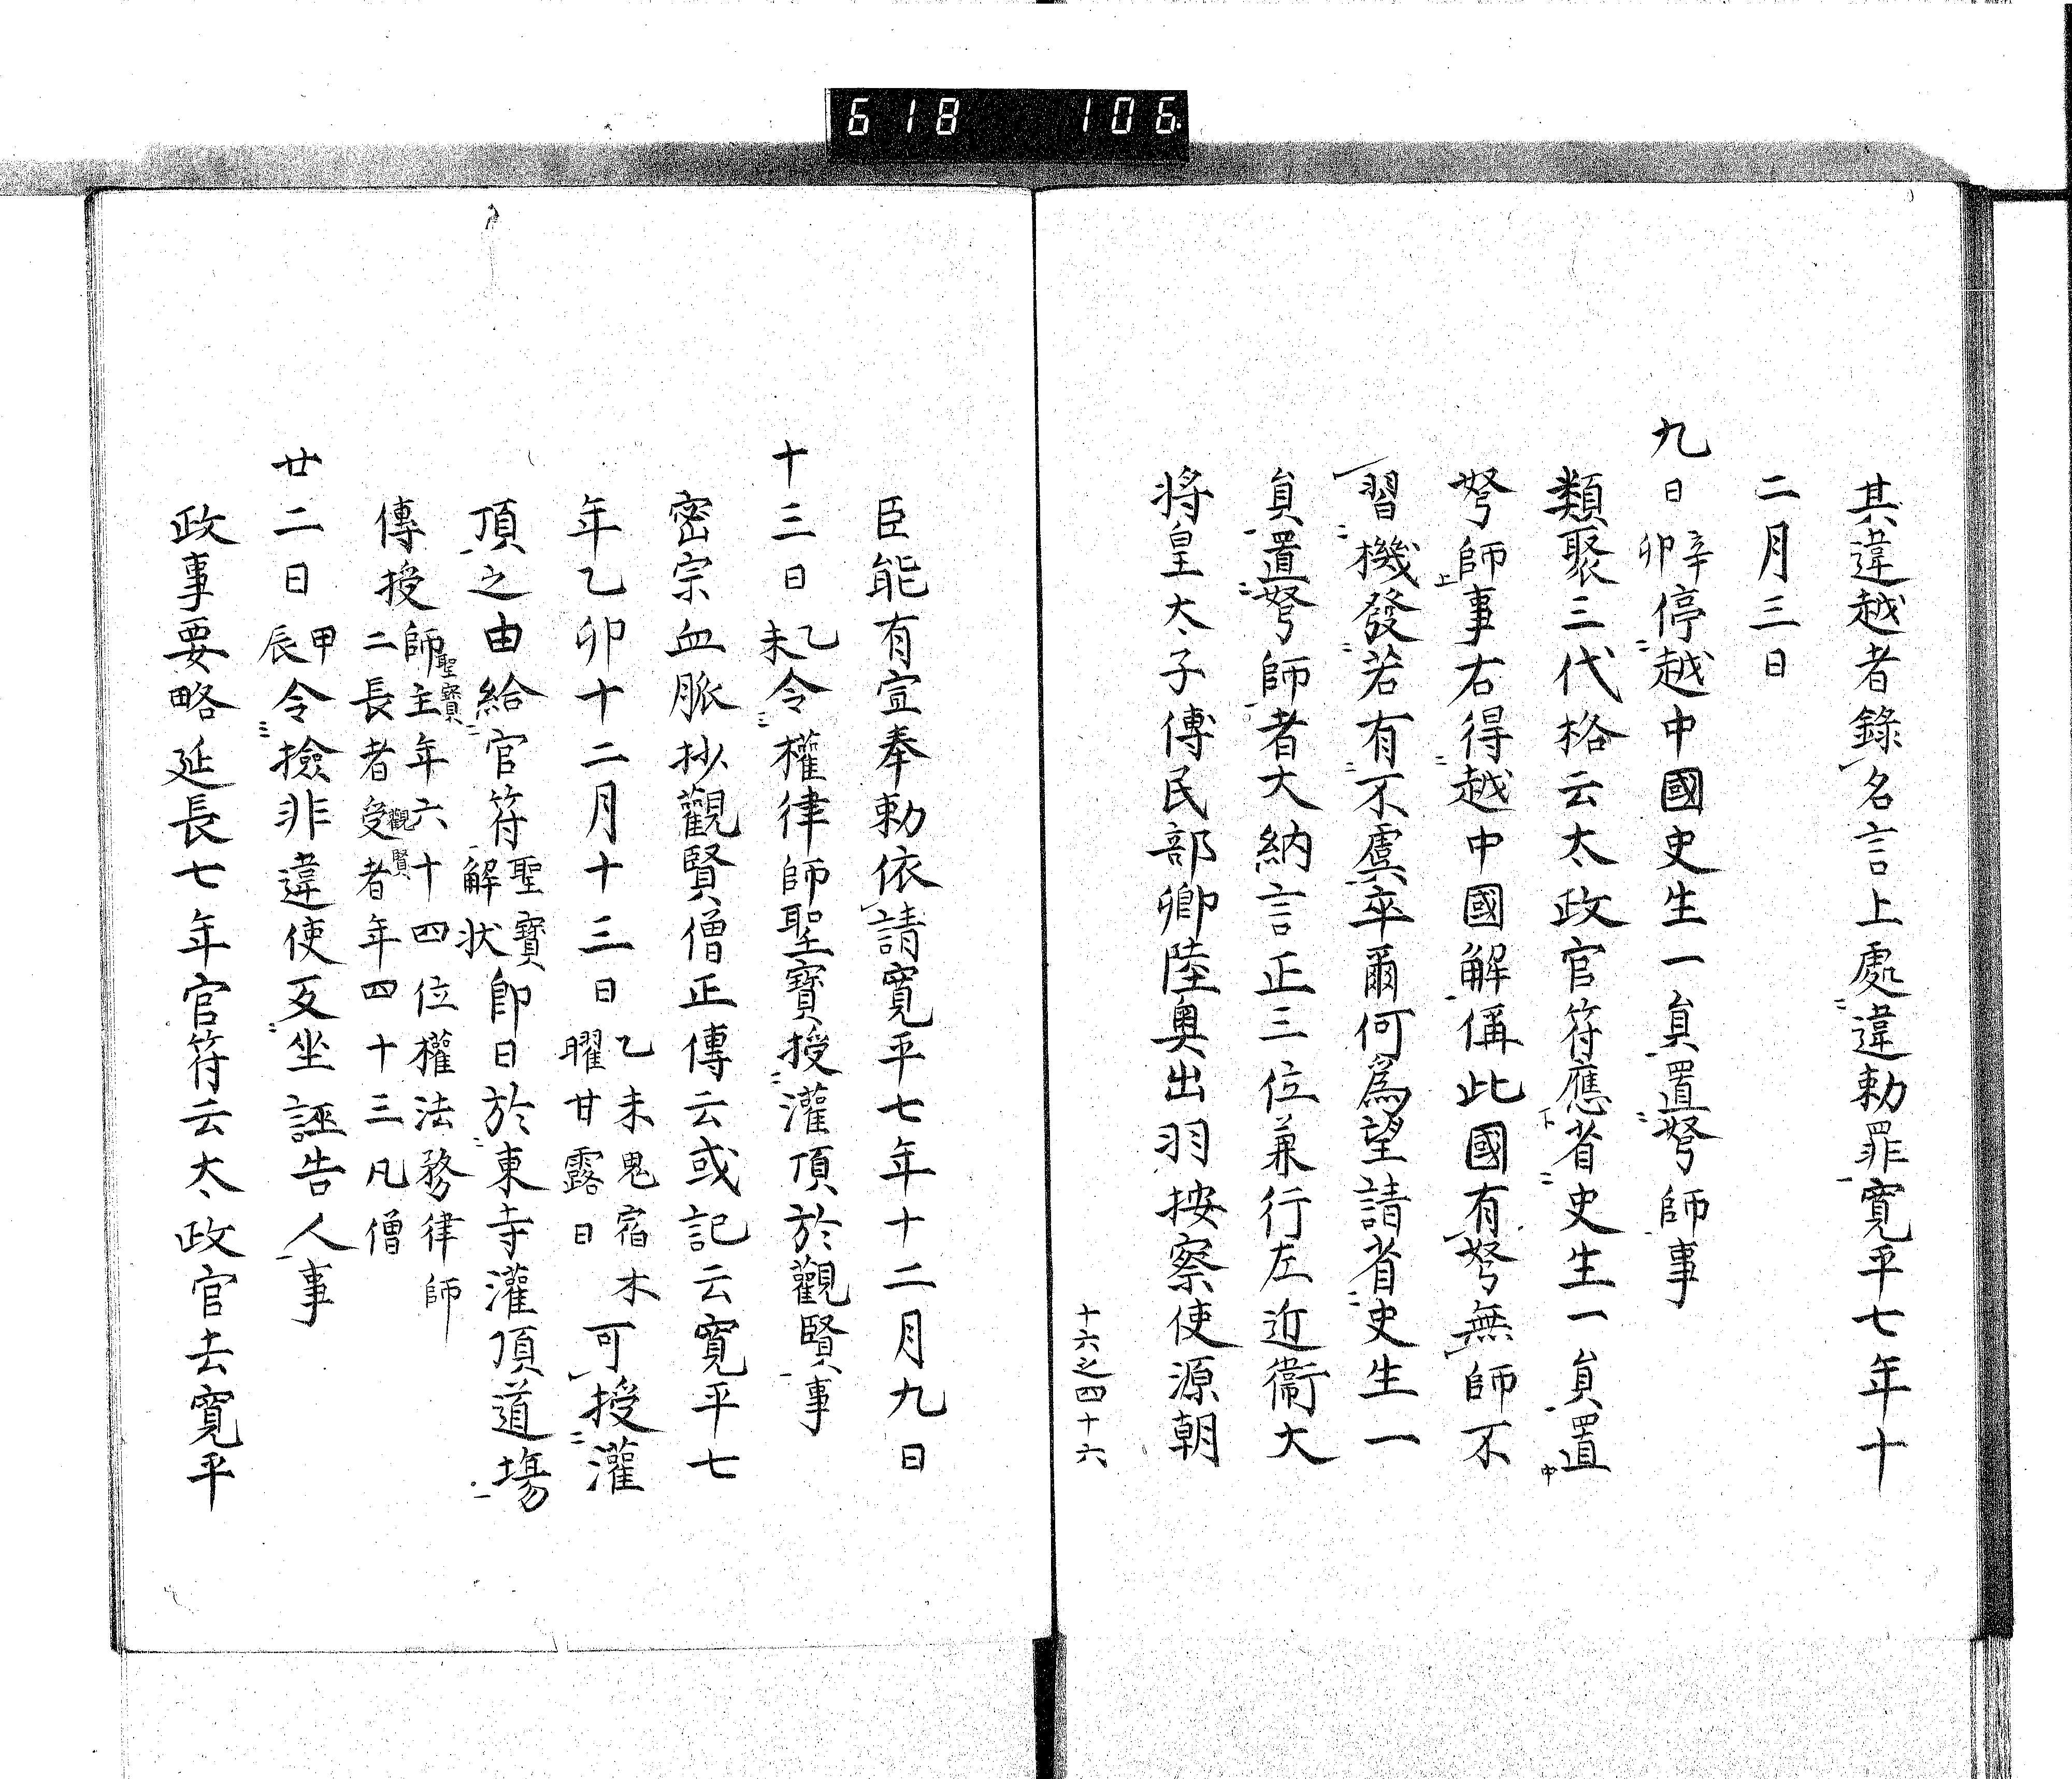 618 106
其違越者錄名言上處違勅罪寬平七年十
二月三日
九日辛卯停越中國史生一負置弩師事
類聚三代格云太政官符應省史生一負置
弩師事右得越中國解偁此國有弩無師不
習機發若有不虞卒爾何爲望請省史生一
負置弩師者大納言正三位兼行左近衞大
将皇太子傅民部卿陸奥出羽按察使源朝
十六之四十六
臣能有宣奉勅依請寬平七年十二月九日
十三日乙未令權律師聖寶授灌頂於觀賢事
密宗血脈抄觀賢僧正傳云或記云寬平七
年乙卯十二月十三日乙未鬼宿木曜甘露日可授灌
頂之由給官符聖寶解状即日於東寺灌頂道場
傳授師主聖寶年六十四位權法務律師二長者受者觀賢年四十三凡僧
廿二日甲辰令撿非違使反坐誣告人事
政事要略延長七年官符云太政官去寬平